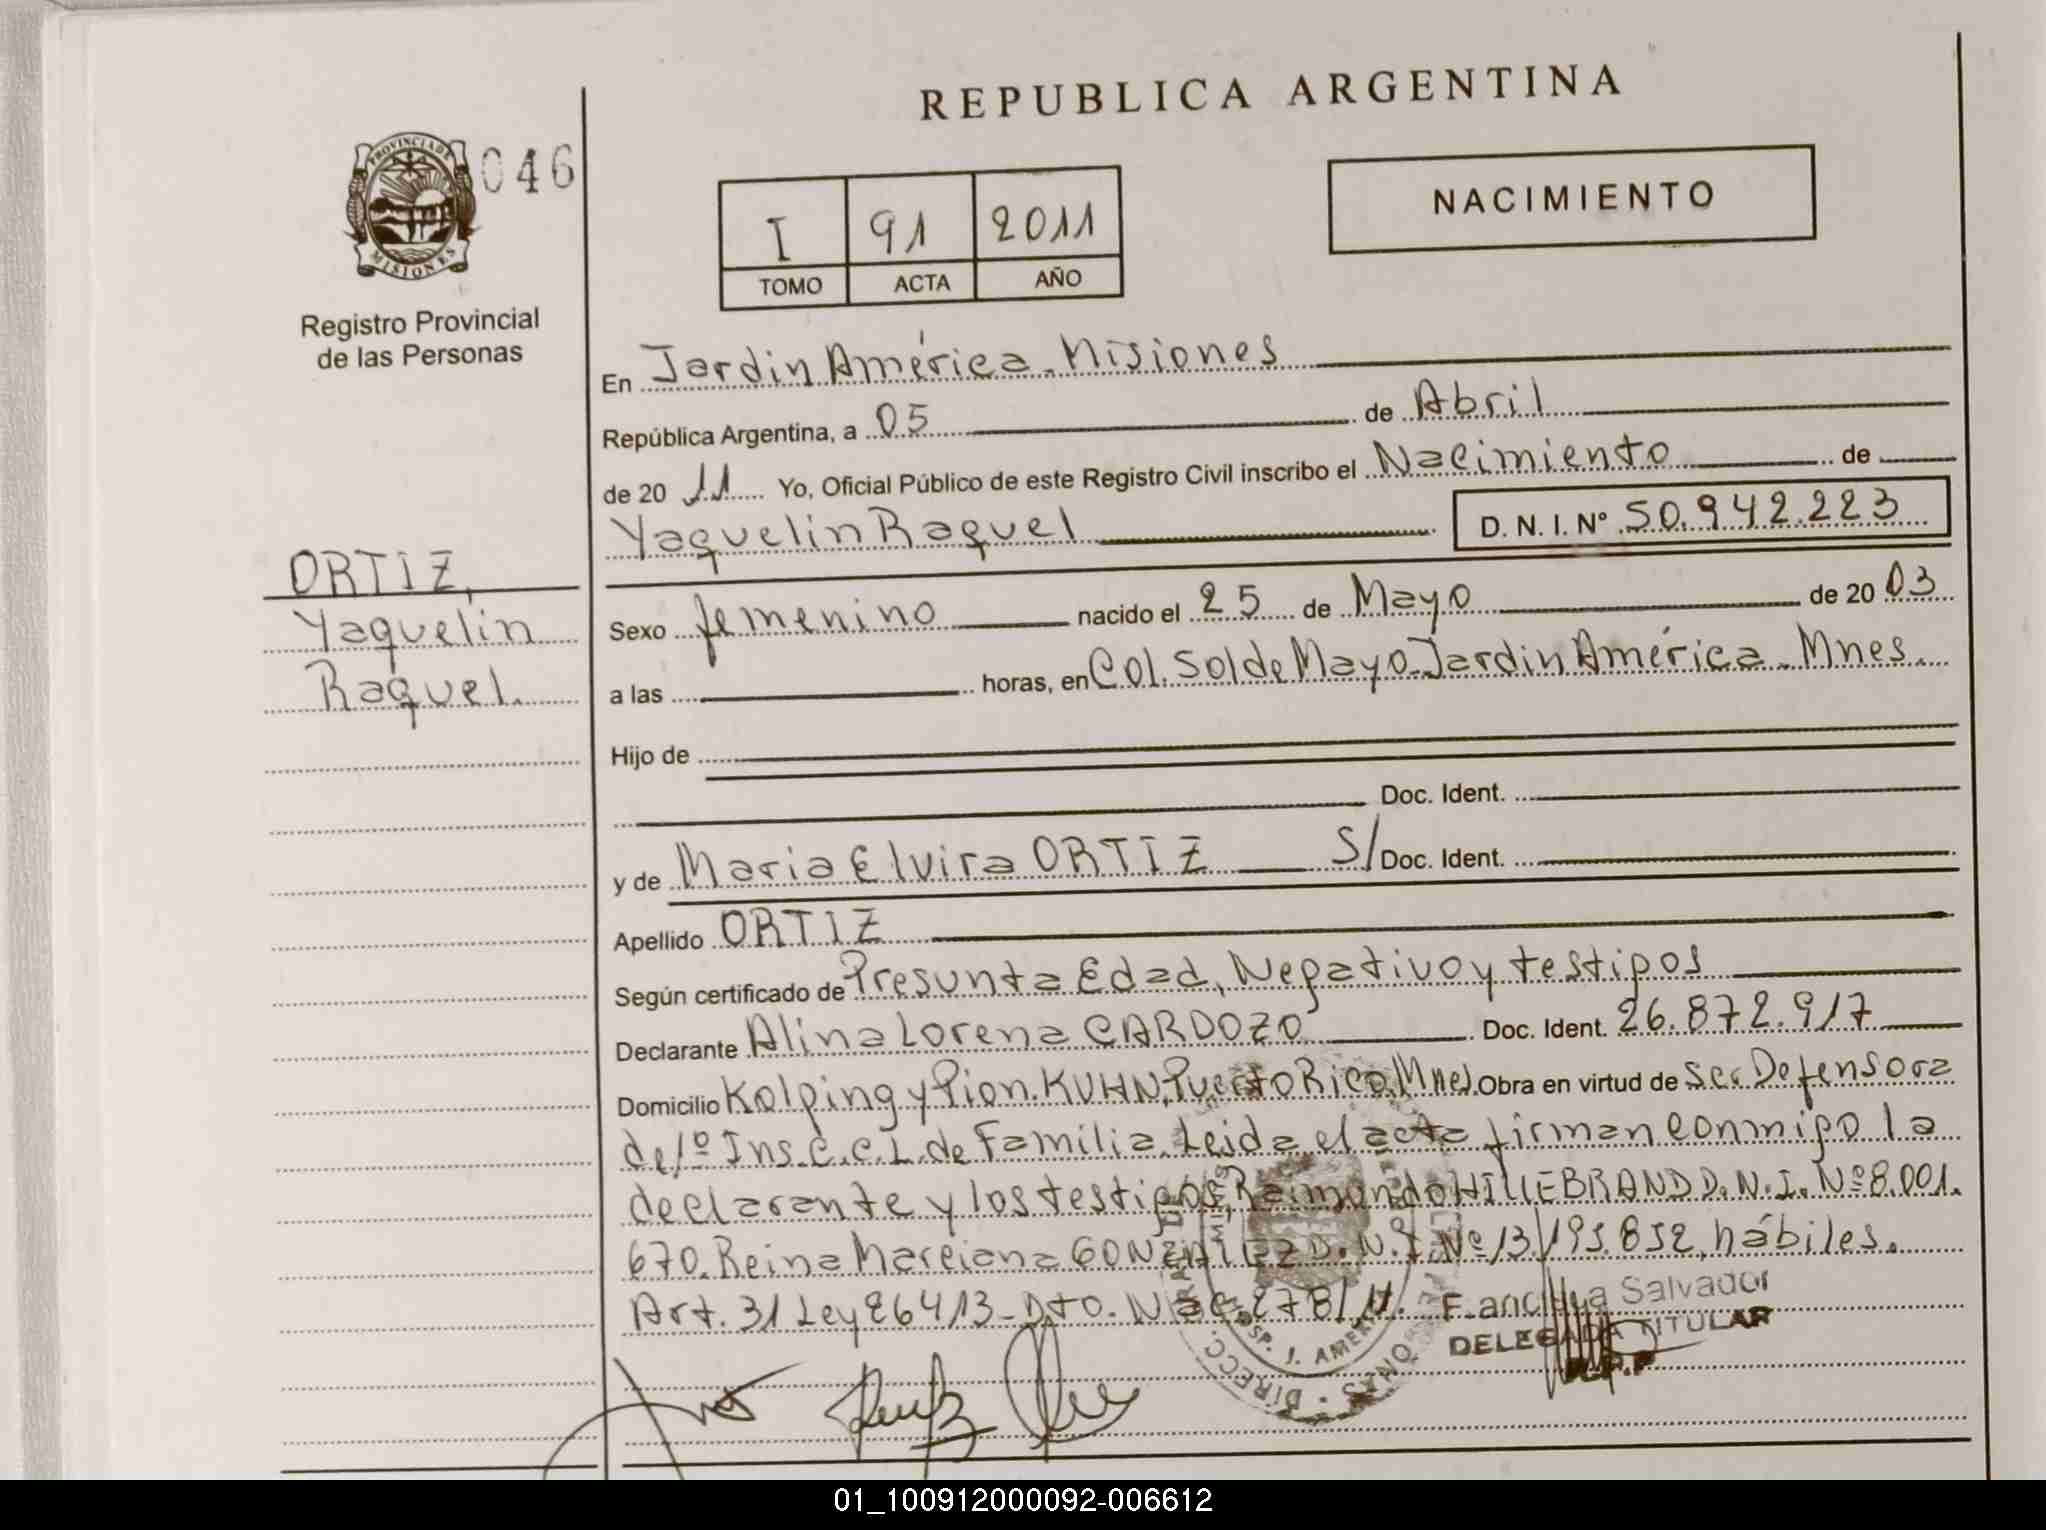 REPUBLICA ARGENTINA
PROVINCIA DE MISIONES
046
Registro Provincial
de las Personas
I 91 2011
TOMO ACTA AÑO
NACIMIENTO
ORTIZ,
Yaquelin
Raquel.
En Jardin América. Misiones
República Argentina, a 05 de Abril
de 20 11 Yo, Oficial Público de este Registro Civil inscribo el Nacimiento de
Yaquelin Raquel D. N. I. Nº 50.942.223
Sexo femenino nacido el 25 de Mayo de 20 03
a las horas, en Col. Sol de Mayo. Jardin América. Mnes.
Hijo de
Doc. Ident.
y de Maria Elvira ORTIZ S/ Doc. Ident.
Apellido ORTIZ
Según certificado de Presunta Edad, Negativo y testigos
Declarante Alina Lorena CARDOZO Doc. Ident. 26.872.917
Domicilio Kolping y Pion. KUHN, Puerto Rico, Mnes. Obra en virtud de ser Defensora
de 1º Ins. C.C.L. de Familia. Leida el acta firman conmigo la
declarante y los testigos, Raimundo HILLEBRAND D.N.I. Nº 8.001.
670. Reina Marciana GONZALEZ D.N.I. Nº 13.195.852, hábiles.
Art. 31 Ley 26413 - Dto. Nac. 278/11.
Salvador
DELEGADA TITULAR
R.P.P
HOSP. J. AMERICA
DIRECC.
01_100912000092-006612